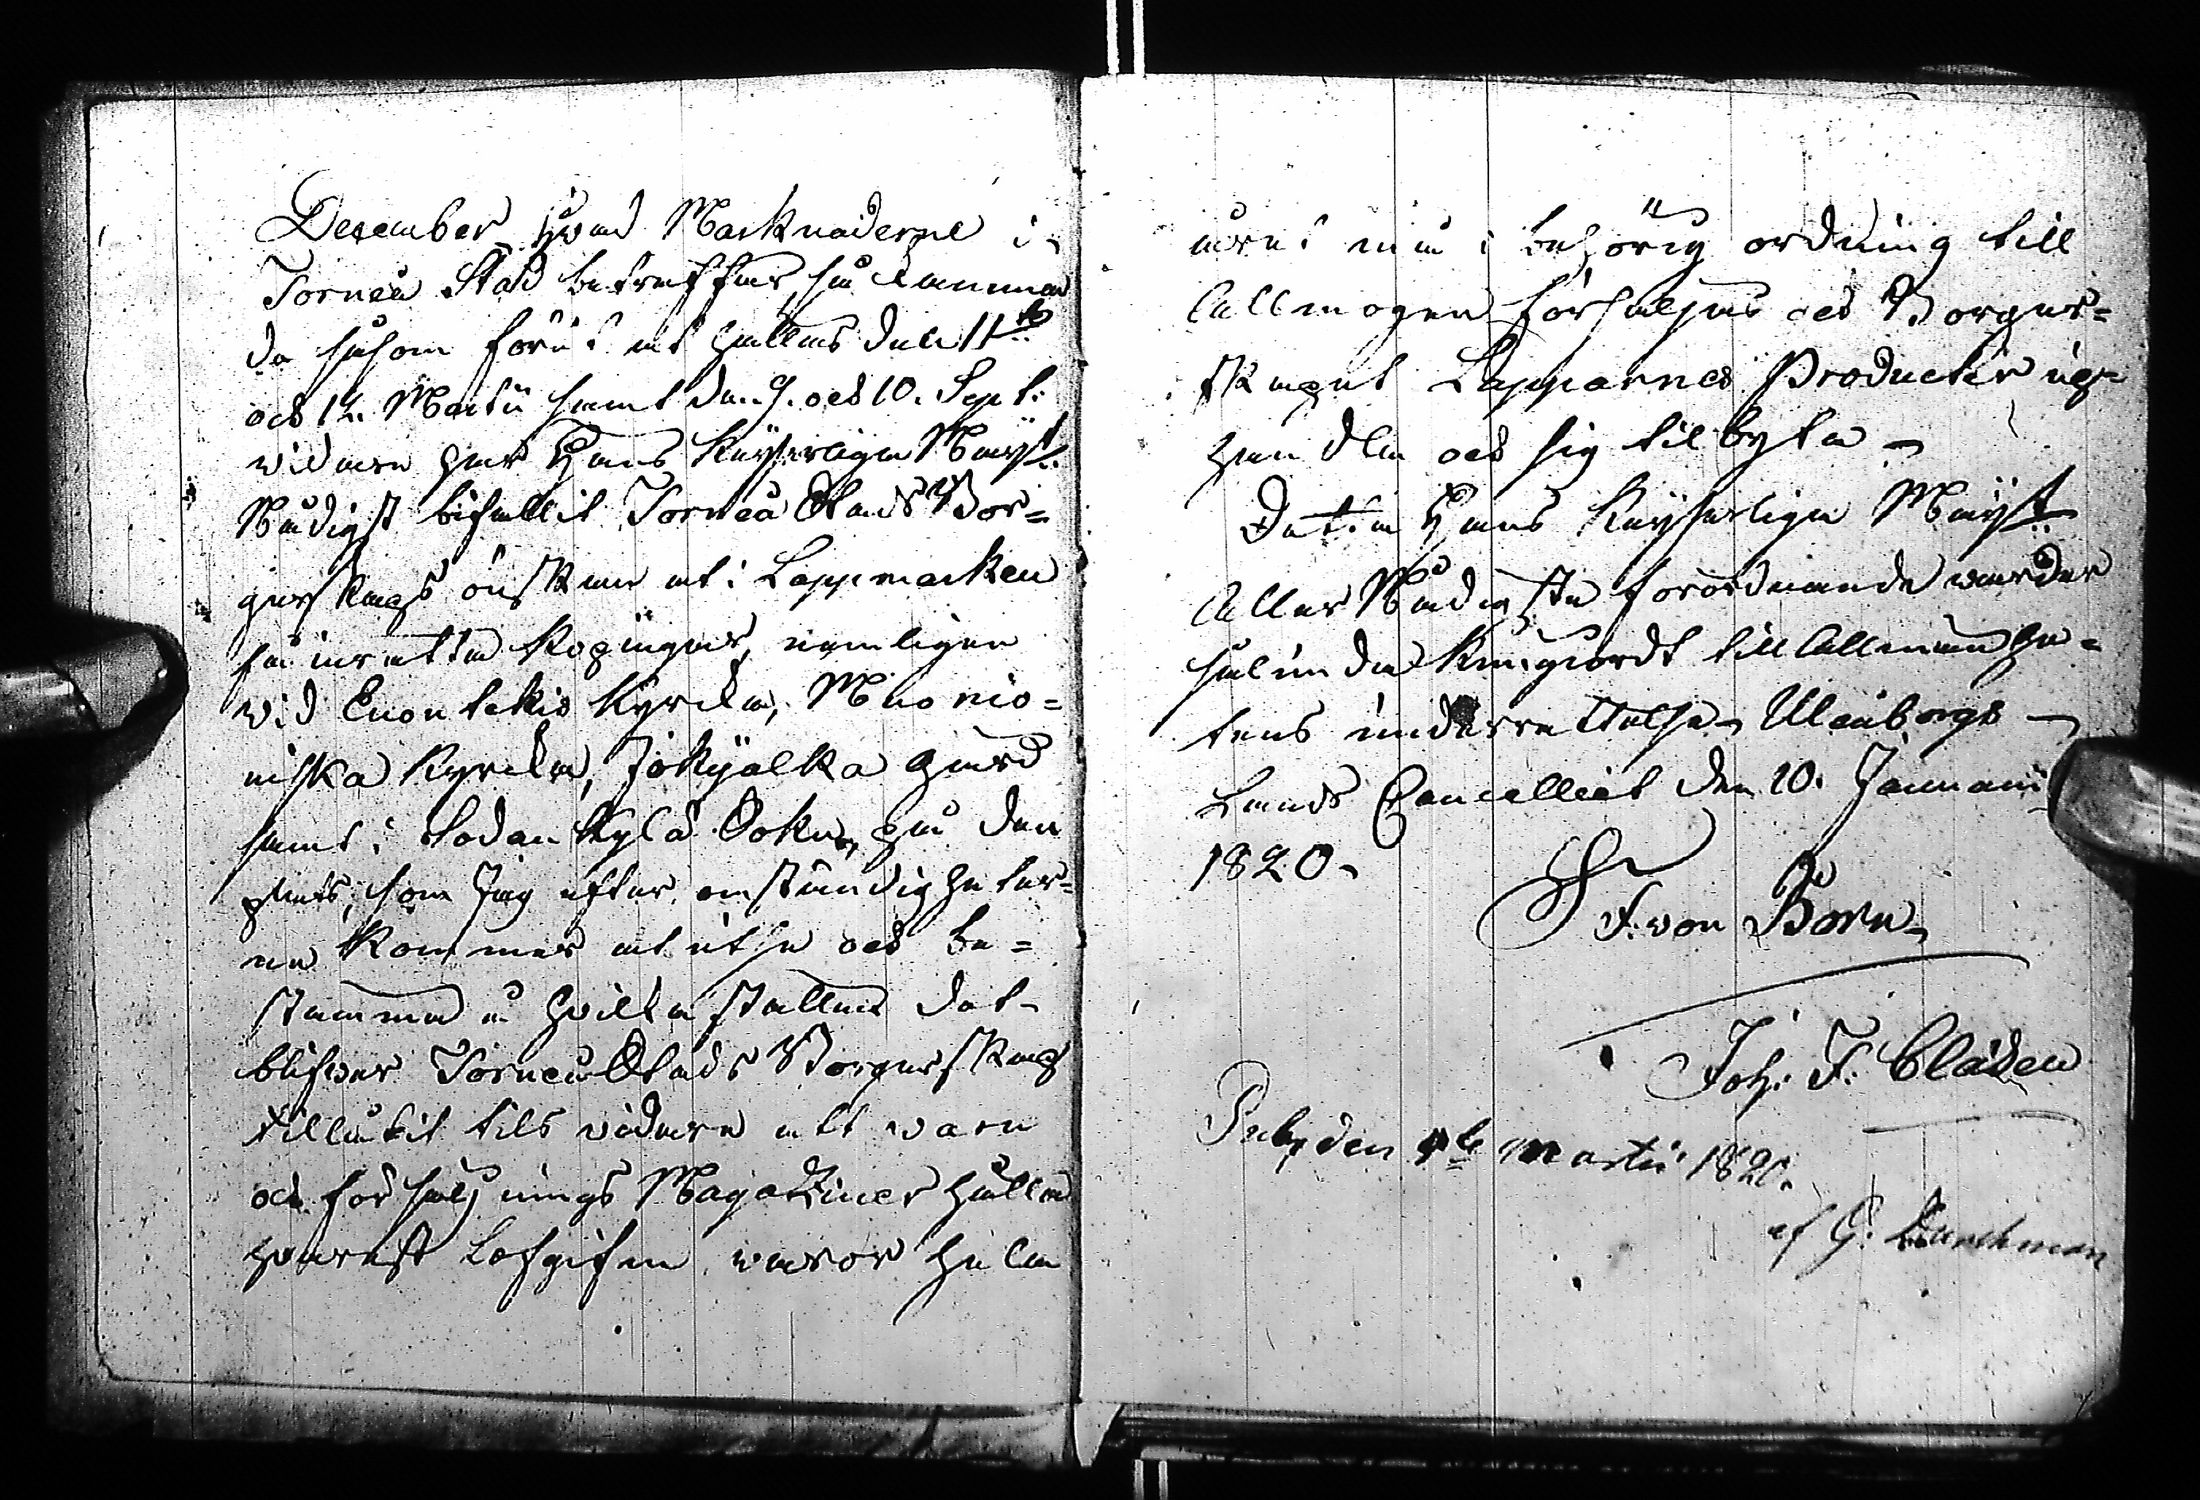 December hvad Marknaderne i
Torneå Stad beträffar, så komma
de såsom förut at hållas den 11te
och 12. Martii samt den 9. och 10. Sept:
vidare har Hans Kejserliga Mayst:
Nådigst bifallit Torneå Stads Bor=
gerskaps önskan at i Lappmarken
få inrätta Köpingar, nemligen
vid Enontekis Kyrcka, Muonio=
niska Kyrcka, Jokijalka gård
samt i Sodankylä Sokn, på den
plats, som Jag efter omständigheter=
ne kommer at utse och be=
stämma å hvilka ställen det
blifver Torneå Stads Borgerskap
tillåtit tils vidare alt vara
och försäljnings Magaziner hålla
hvarest lofgifna varor hela
året må i behörig ordning till
Allmogen försäljas och Borger=
skapet Lapparnes Producter up=
handla och sig tilbyta
Detta Hans Kejserliga Mayst:
Aller Nådigste förordnande varder
sålunda kungiordt till Allmänhe=
tens underrättelse. Uleåborgs
Lands Cancelliet den 10. Januarii
1820.
F. von Born
Joh: F: Claden
Publ. den Martii 1820.
af G: Durchman